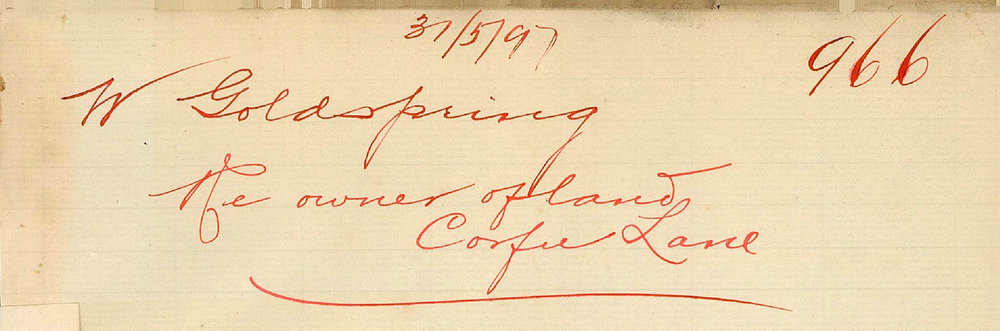 31/5/97
966
W Goldspring
Re owner of land
Corfu Lane